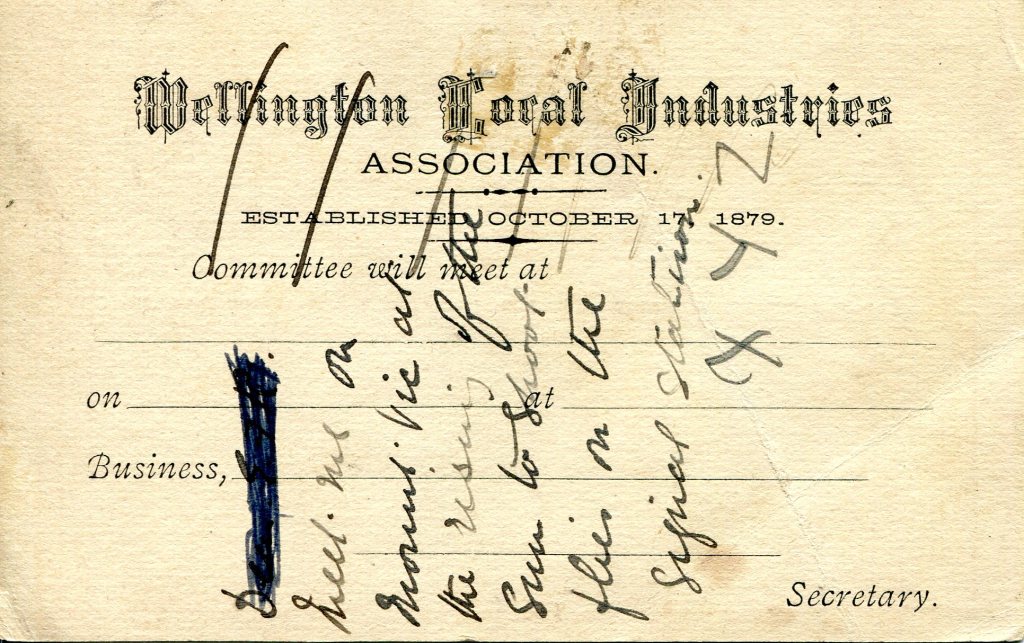 Wellington Local Industries
ASSOCIATION.
ESTABLISHED OCTOBER 17, 1879.
Committee will meet at
on at
Business,
Secretary.
Meet me on
Mount Vic at
the rising of the
Sun to Shoot
flies on the
Signal Station
X Y Z